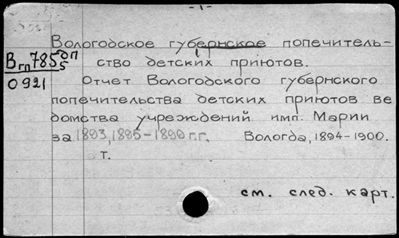 -1-
Вологодское губернское попечитель-
ство детских приютов.
Вгп 785 оп 5
0921
Отчет Вологодского губернского
попечительства детских приютов ве
домства учреждений имп. Марии
за 1893, 1895-1899 г.г. Вологда, 1894-1900.
т.
см. след. карт.